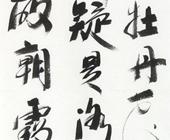 牡丹花
疑是洛
破朝霞